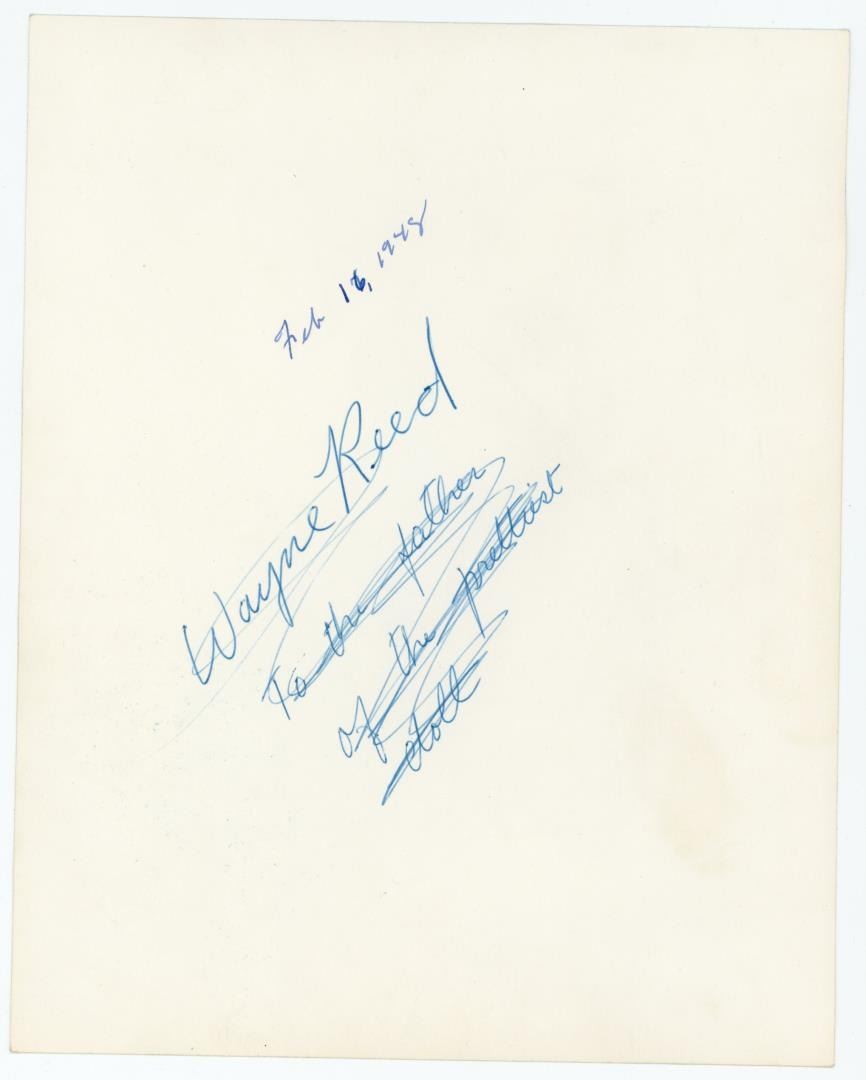 Feb 16, 1948
Wayne Reed
To the father
of the prettiest
doll